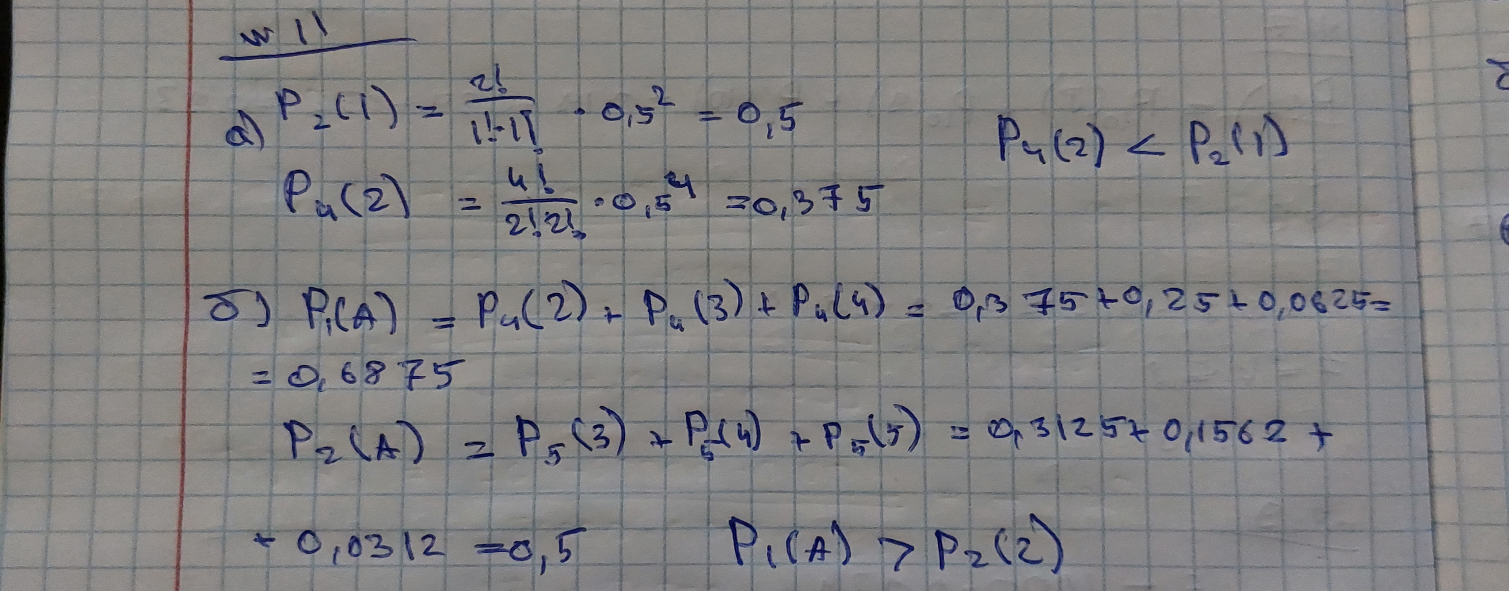 № 11
а) P₂(1) = 2!/(1!·1!) · 0,5² = 0,5
P₄(2) < P₂(1)
P₄(2) = 4!/(2!2!) · 0,5⁴ = 0,375
б) P₁(A) = P₄(2) + P₄(3) + P₄(4) = 0,375+0,25+0,0625=
= 0,6875
P₂(A) = P₅(3) + P₅(4) + P₅(5) = 0,3125+ 0,1562 +
+ 0,0312 = 0,5 P₁(A) > P₂(2)